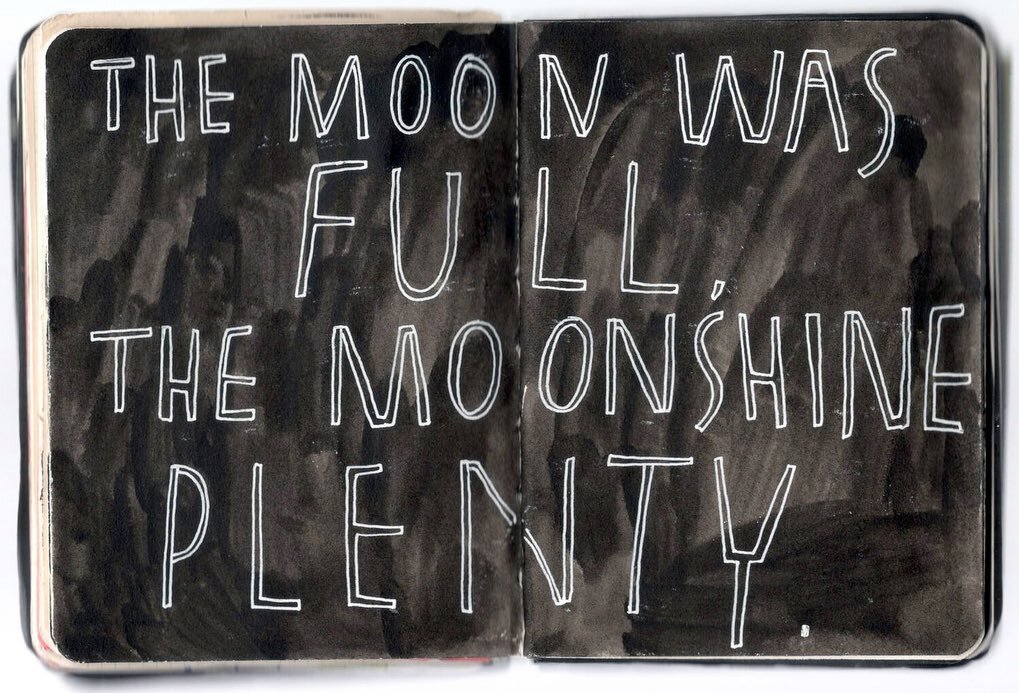 THE MOON WAS
FULL,
THE MOONSHINE
PLENTY.